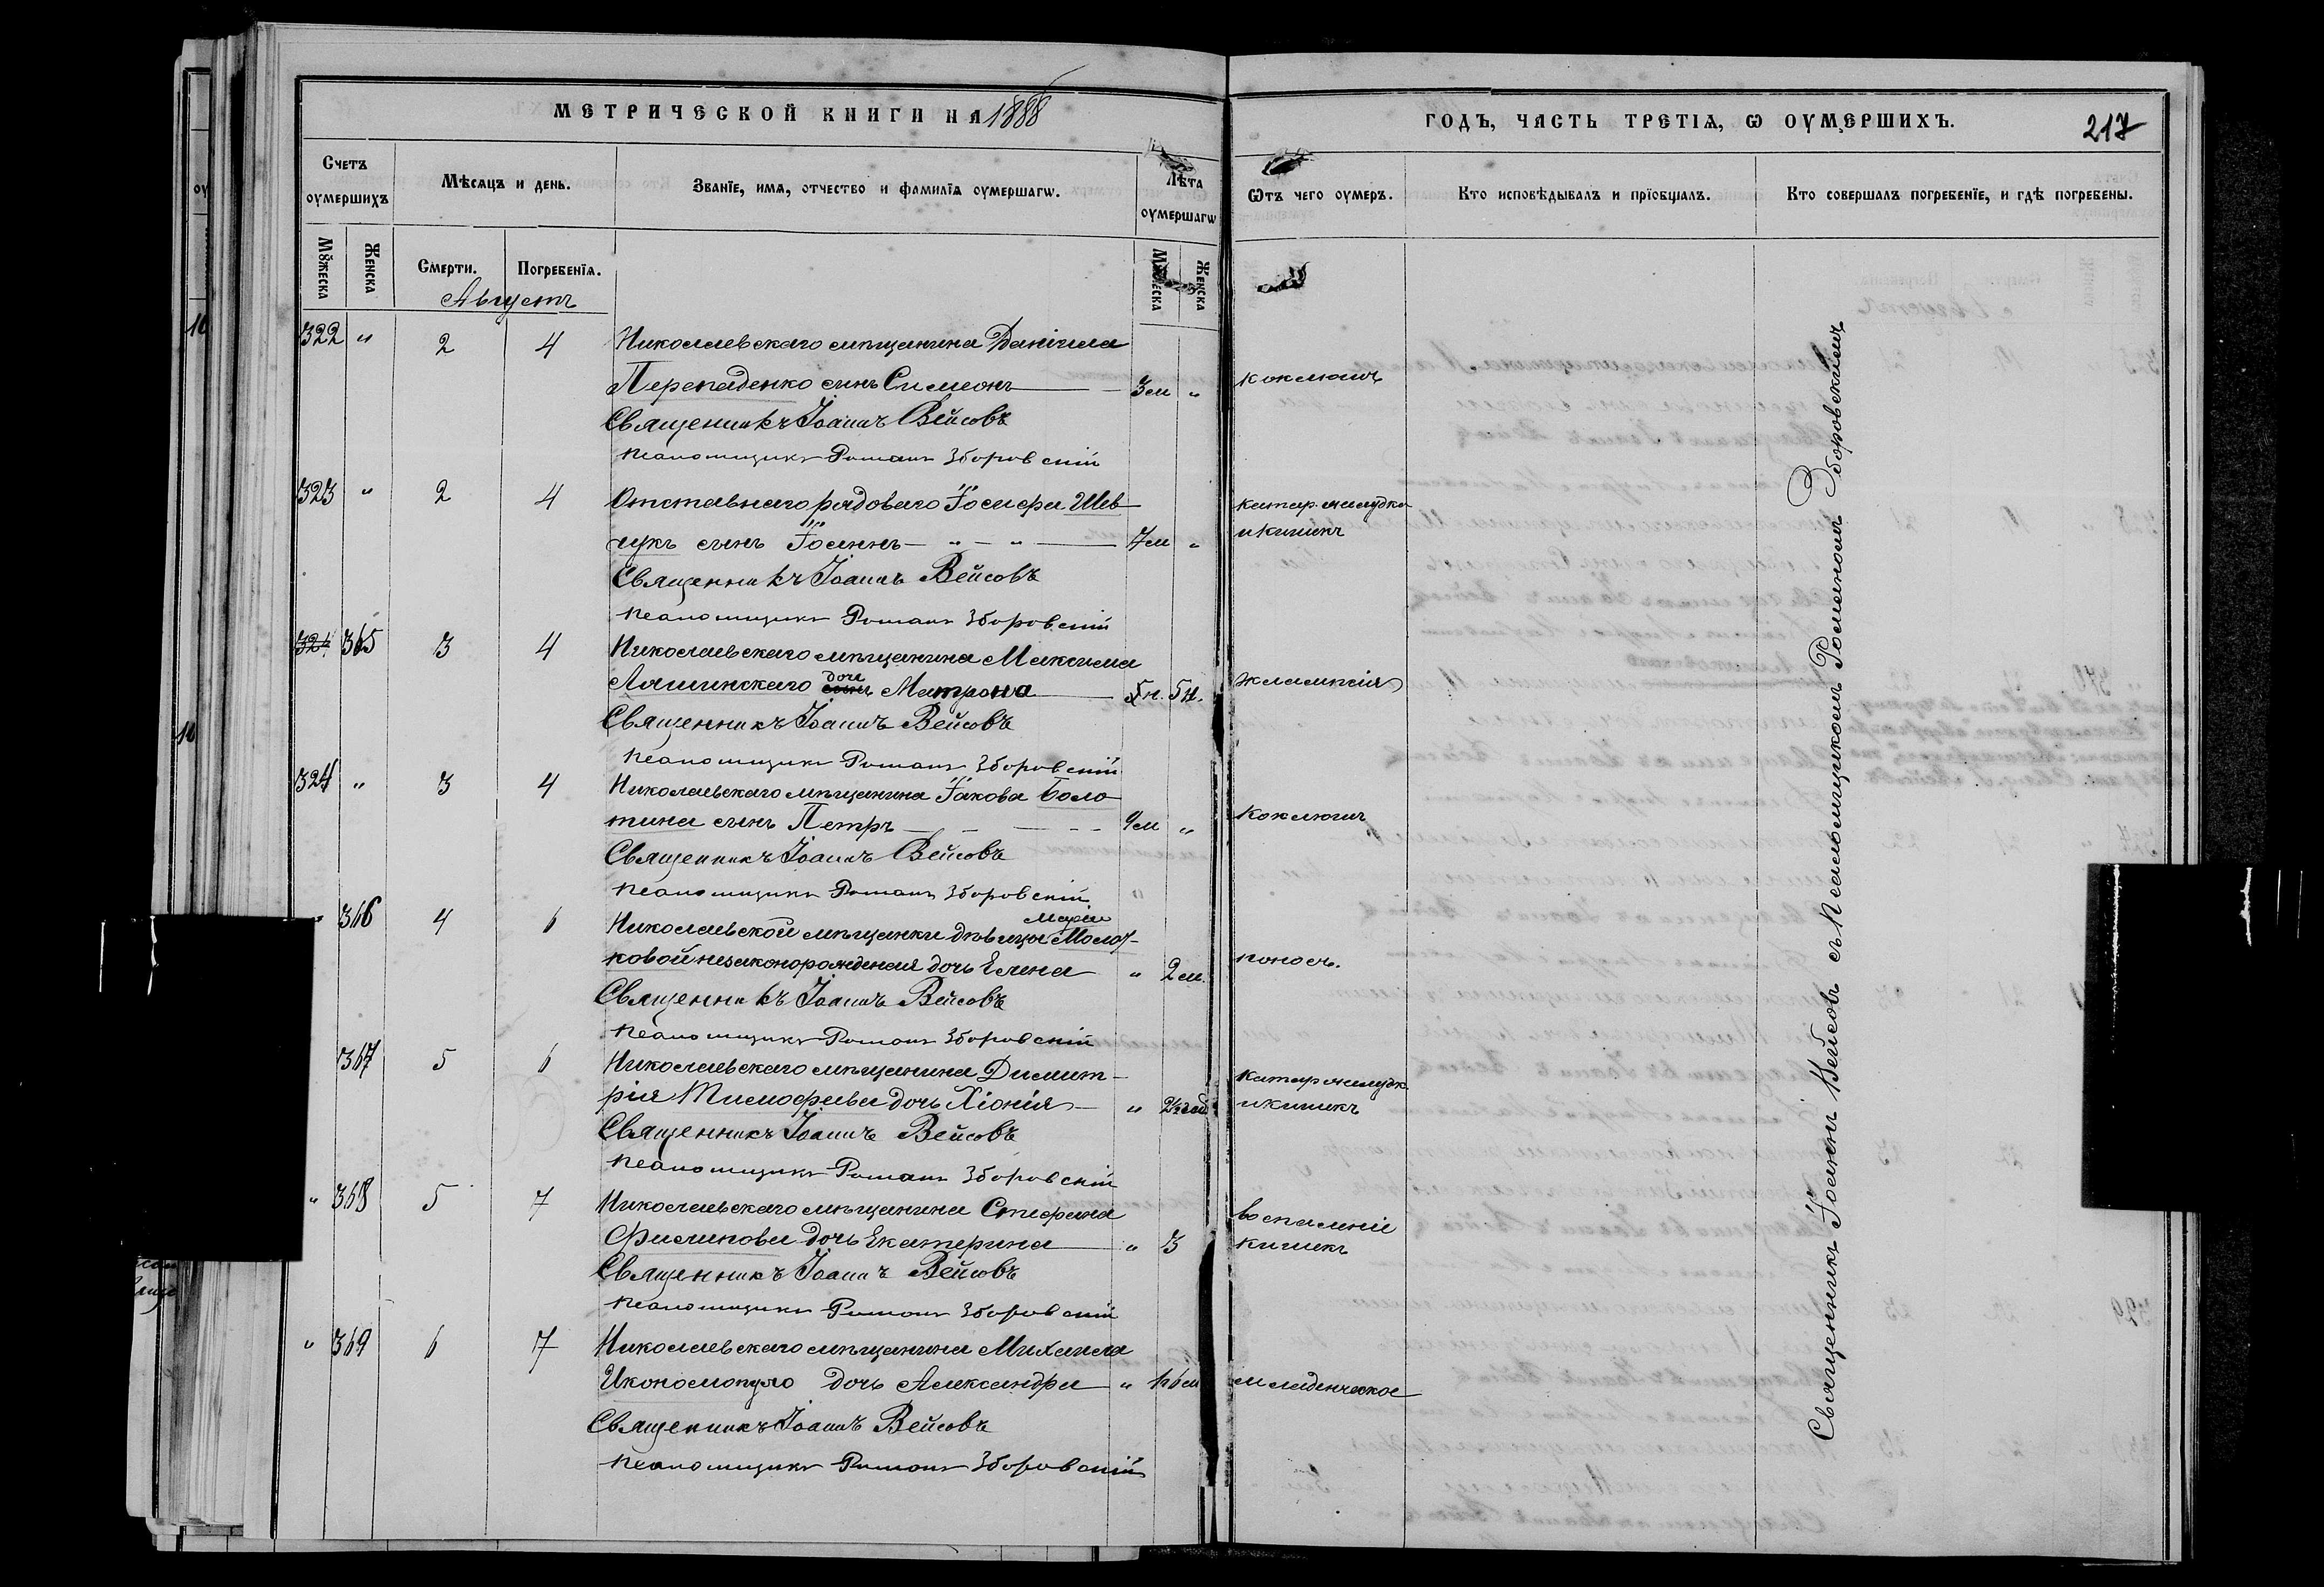 МЕТРИЧЕСКОЙ КНИГИ НА 1888
ГОДЪ, ЧАСТЬ ТРЕТІѦ, Ѡ ОУМЕРШИХЪ.
217
Счетъ оумершихъ
Мѣсѧцъ и день.
Званїе, имѧ, отчество и фамилїѧ оумершагѡ.
Лѣта оумершагѡ
Ѿтъ чего оумеръ.
Кто исповѣдывалъ и прїобщалъ.
Кто совершалъ погребенїе, и гдѣ погребены.
Мꙋжеска
Женска
Смерти.
Погребенїѧ.
Мꙋжеска
Женска
Августъ
322 " 2 4 Николаевскаго мѣщанина Даніила
Перепаденко сынъ Симеонъ 3 м " коклюшъ
Священникъ Іоаннъ Вейсовъ
Псаломщикъ Романъ Зборовскій
323 " 2 4 Отставнаго рядоваго Іосифа Шев
чукъ сынъ Іоаннъ — " — " — 7 м " катар. желудка
и кишекъ
Священникъ Іоаннъ Вейсовъ
Псаломщикъ Романъ Зборовскій
324 365 3 4 Николаевскаго мѣщанина Максима
Ляшинскаго сынъ дочь Матрона 5 н. 5 н.
Священникъ Іоаннъ Вейсовъ
Псаломщикъ Романъ Зборовскій
324 " 3 4 Николаевскаго мѣщанина Іакова Боло
тина сынъ Петръ 9 м " Коклюшъ
Священникъ Іоаннъ Вейсовъ
Псаломщикъ Романъ Зборовскій
" 366 4 6 Николаевской мѣщанки дѣвицы Маріи Молот-
ковой незаконорожденая дочь Елена " 2 м. поносъ.
Священникъ Іоаннъ Вейсовъ
Псаломщикъ Романъ Зборовскій
367 5 6 Николаевскаго мѣщанина Димит-
рія Тимофеева дочь Хіонія " 2½ год катар желудк.
и кишекъ
Священникъ Іоаннъ Вейсовъ
Псаломщикъ Романъ Зборовскій
" 368 5 7 Николаевскаго мѣщанина Стефана
Филипова дочь Екатерина " 3 воспаленіе
кишекъ
Священникъ Іоаннъ Вейсовъ
Псаломщикъ Романъ Зборовскій
" 369 6 7 Николаевскаго мѣщанина Михаила
Икономопуло дочь Александра " младенческое
Священникъ Іоаннъ Вейсовъ
Псаломщикъ Романъ Зборовскій
Священникъ Іоаннъ Вейсовъ съ Псаломщикомъ Романомъ Зборовскимъ